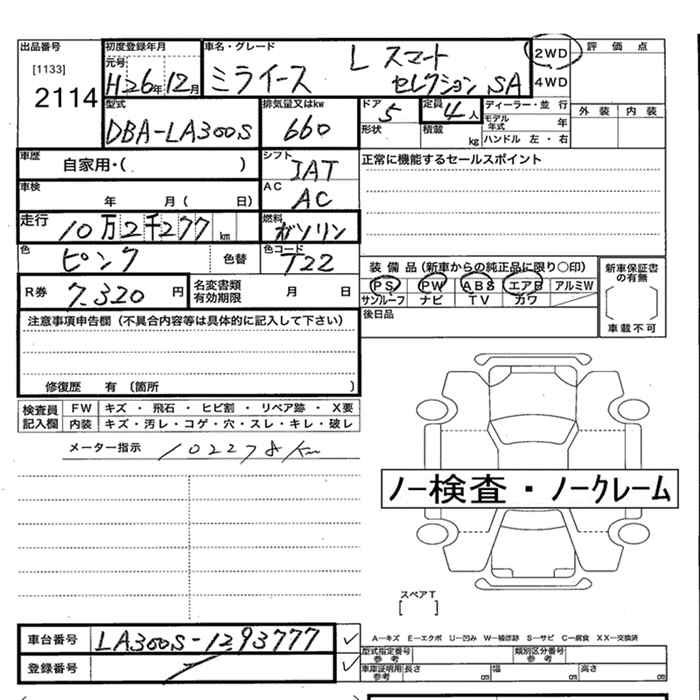 出品番号 初度登録年月 車名・グレード 評価点
[1133] 元号 H26年12月 ミライース L スマート セレクション SA 2WD
2114 4WD
型式 排気量又はkw ドア 定員 ディーラー・並行 外装 内装
DBA-LA300S 660 5 4人 モデル年式 年
形状 積載 kg ハンドル 左・右
車歴 自家用・( ) シフト IAT 正常に機能するセールスポイント
車検 年 月( 日) AC AC
走行 10万2千277km 燃料 ガソリン
色 ピンク 色替 色コード T22
装備品(新車からの純正品に限り〇印) 新車保証書の有無
R券 7,320円 名変書類有効期限 月 日 PS PW ABS エアB アルミW
サンルーフ ナビ TV カワ
[ ]
後日品 車載不可
注意事項申告欄(不具合内容等は具体的に記入して下さい)
修復歴 有(箇所 )
検査員記入欄 FW キズ・飛石・ヒビ割・リペア跡・X要
内装 キズ・汚レ・コゲ・穴・スレ・キレ・破レ
メーター指示 102278km
ノー検査・ノークレーム
スペアT
[ ]
車台番号 LA300S-1293777 ✓
A-キズ E-エクボ U-凹み W-補修跡 S-サビ C-腐食 XX-交換済
登録番号 ✓
型式指定番号参考 類別区分番号参考
車庫証明用参考 長さ cm 幅 cm 高さ cm